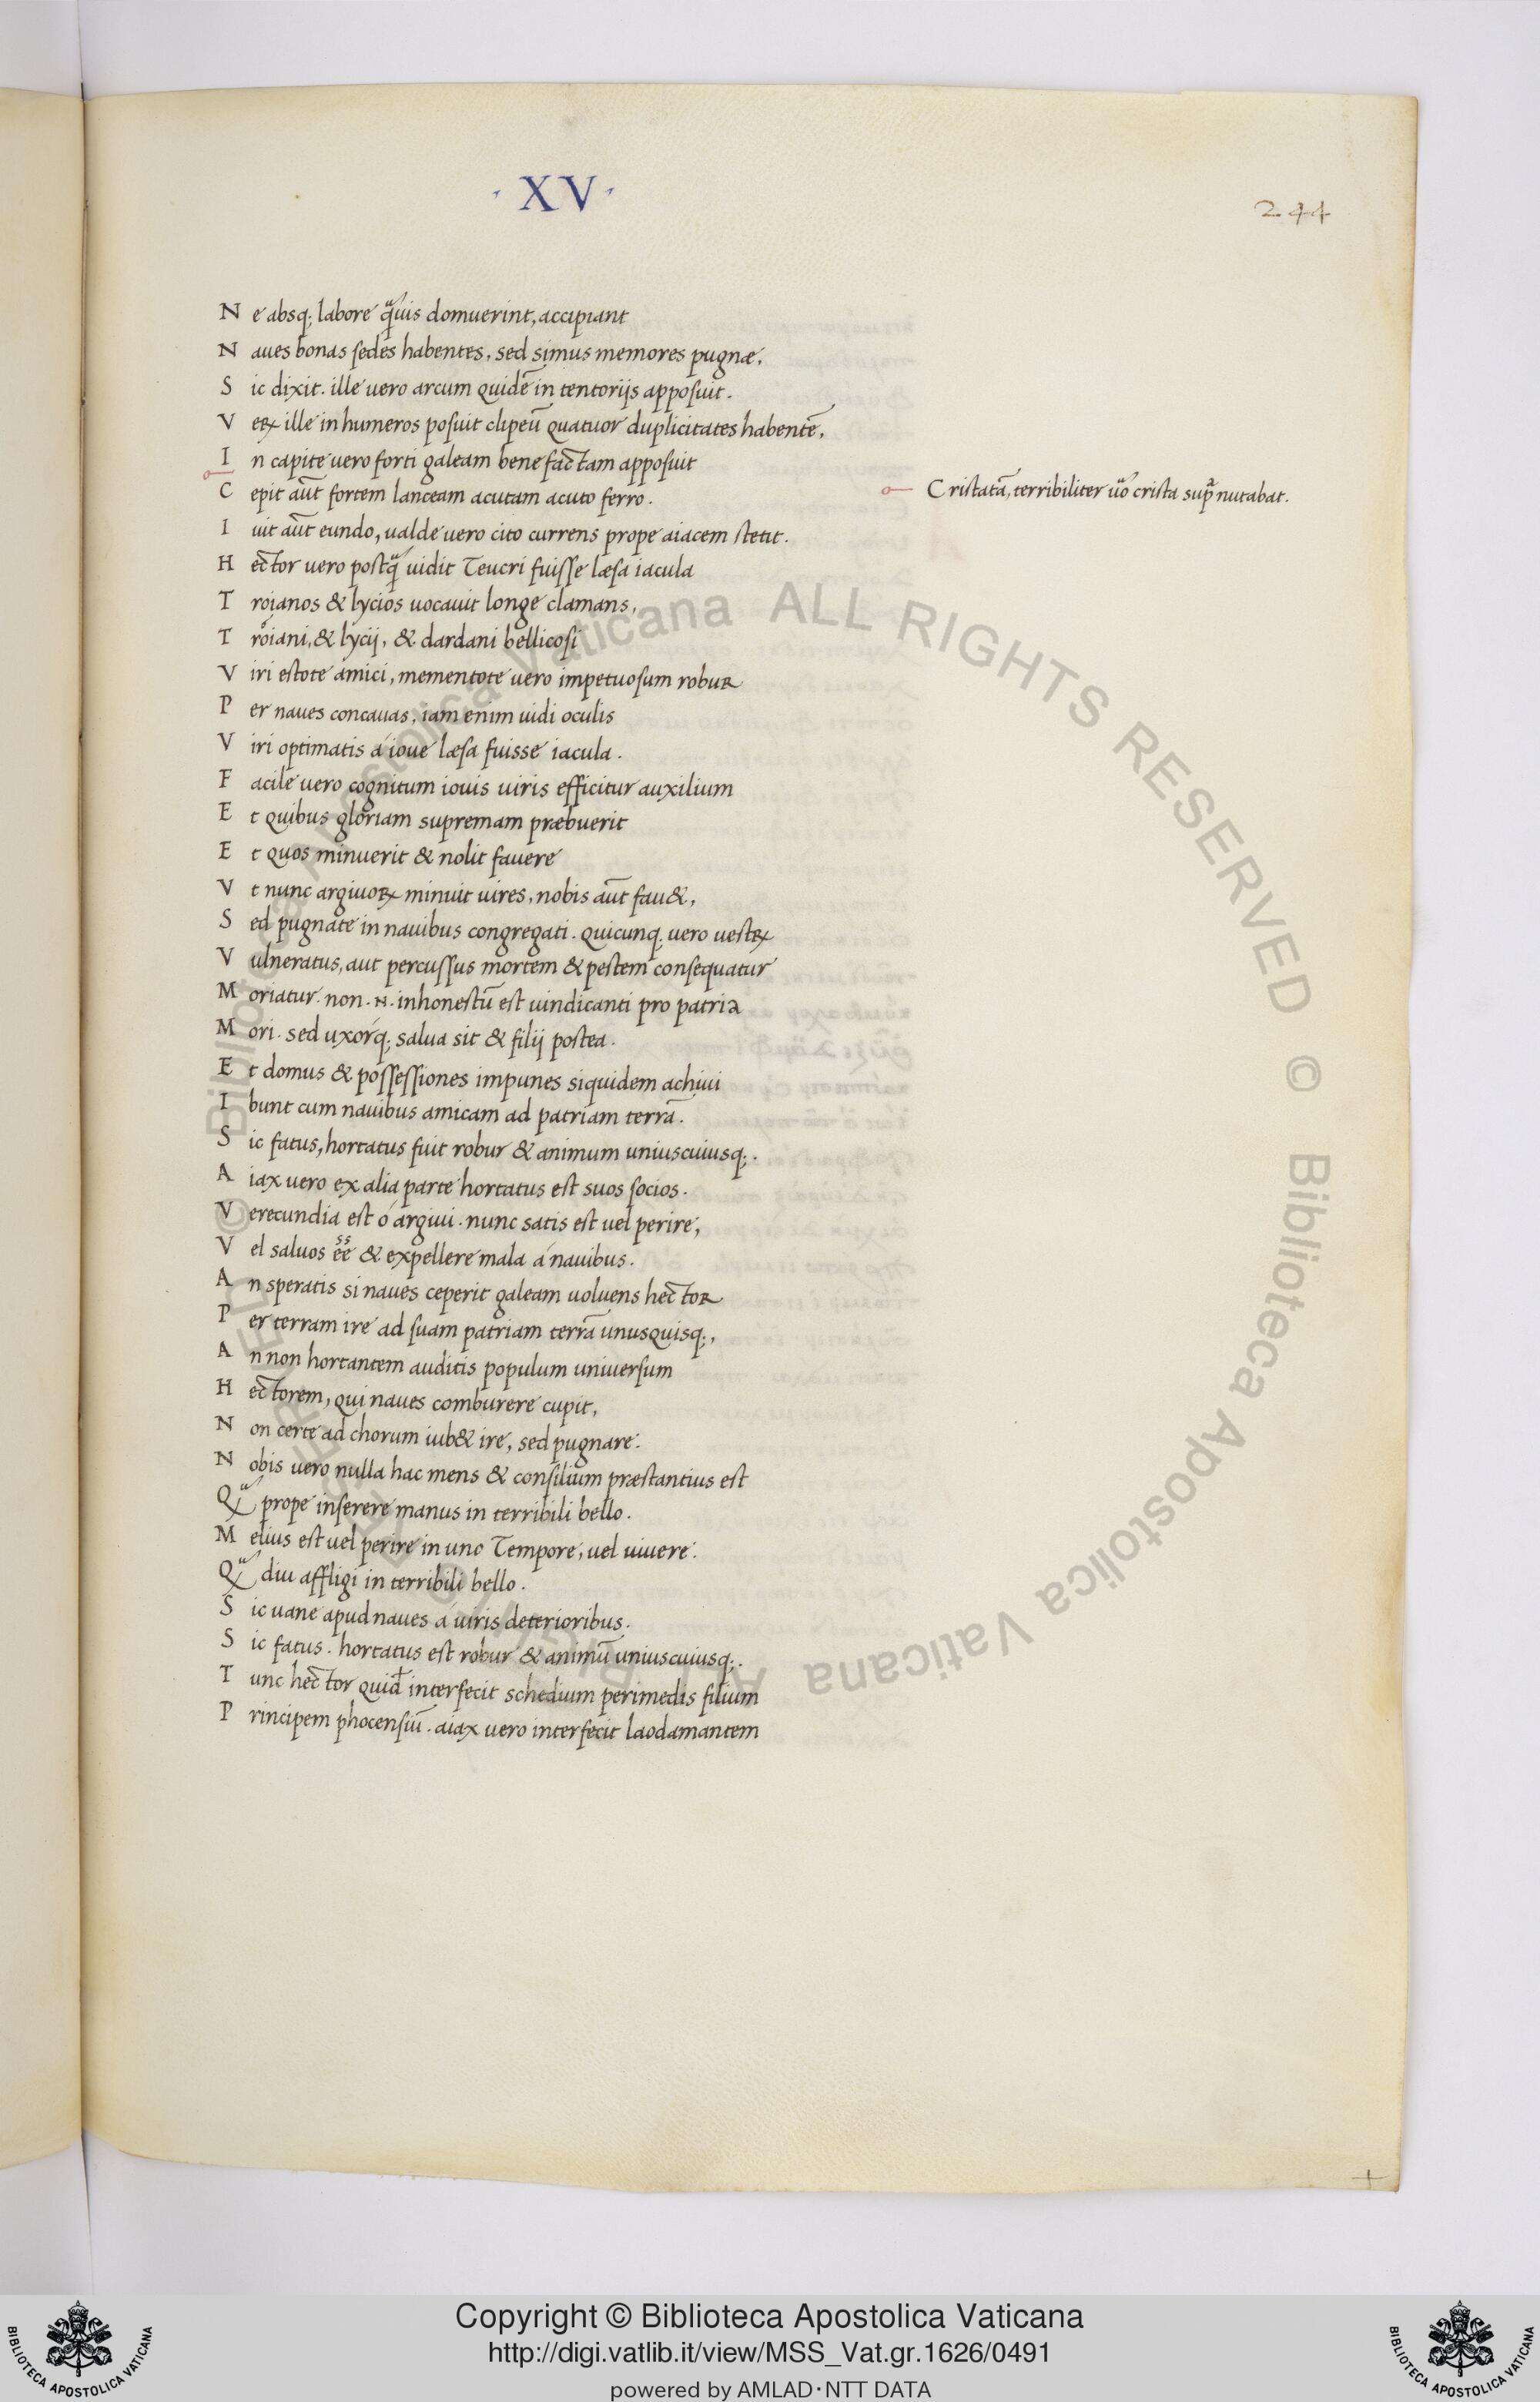 · XV ·
244
Ne absq; labore q̃uis domuerint, accipiant
Naues bonas sedes habentes, sed simus memores pugnæ,
Sic dixit. ille uero arcum quidē in tentorijs apposuit.
Veꝝ ille in humeros posuit clipeū quatuor duplicitates habentē,
In capite uero forti galeam bene factam apposuit
Cristatā, terribiliter ūo crista sup̃ nutabat.
Cepit aūt fortem lanceam acutam acuto ferro.
Iuit aūt eundo, ualde uero cito currens prope aiacem stetit.
Hector uero postq̃ uidit Teucri fuisse læsa iacula
Troianos & lycios uocauit longe clamans,
Troiani, & lycij, & dardani bellicosi
Viri estote amici, mementote uero impetuosum robur
Per naues concauas, iam enim uidi oculis
Viri optimatis á ioue læsa fuisse iacula.
Facile uero cognitum iouis uiris efficitur auxilium
Et quibus gloriam supremam præbuerit
Et quos minuerit & nolit fauere
Vt nunc argiuoꝝ minuit uires, nobis aūt fau&,
Sed pugnate in nauibus congregati. quicunq; uero uestꝝ
Vulneratus, aut percussus mortem & pestem consequatur
Moriatur. non .n. inhonestū est uindicanti pro patria
Mori. sed uxorq́; salua sit & filij postea.
Et domus & possessiones impunes siquidem achiui
Ibunt cum nauibus amicam ad patriam terrā.
Sic fatus, hortatus fuit robur & animum uniuscuiusq;.
Aiax uero ex alia parte hortatus est suos socios.
Verecundia est ó argiui. nunc satis est uel perire,
Vel saluos ee͂ & expellere mala á nauibus.
An speratis si naues ceperit galeam uoluens hector
Per terram ire ad suam patriam terrā unusquisq;,
An non hortantem auditis populum uniuersum
Hectorem, qui naues comburere cupit,
Non certe ad chorum iub& ire, sed pugnare.
Nobis uero nulla hac mens & consilium præstantius est
Q̃ prope inserere manus in terribili bello.
Melius est uel perire in uno Tempore, uel uiuere.
Q̃ diu affligi in terribili bello.
Sic uane apud naues á uiris deterioribus.
Sic fatus. hortatus est robur & animū uniuscuiusq;.
Tunc hector quid̃ interfecit schedium perimedis filium
Principem phocensiū. aiax uero interfecit laodamantem
© Biblioteca Apostolica Vaticana ALL RIGHTS RESERVED © Biblioteca Apostolica Vaticana ALL RIGHTS RESERVED
Copyright © Biblioteca Apostolica Vaticana
http://digi.vatlib.it/view/MSS_Vat.gr.1626/0491
powered by AMLAD·NTT DATA
BIBLIOTECA APOSTOLICA VATICANA
BIBLIOTECA APOSTOLICA VATICANA